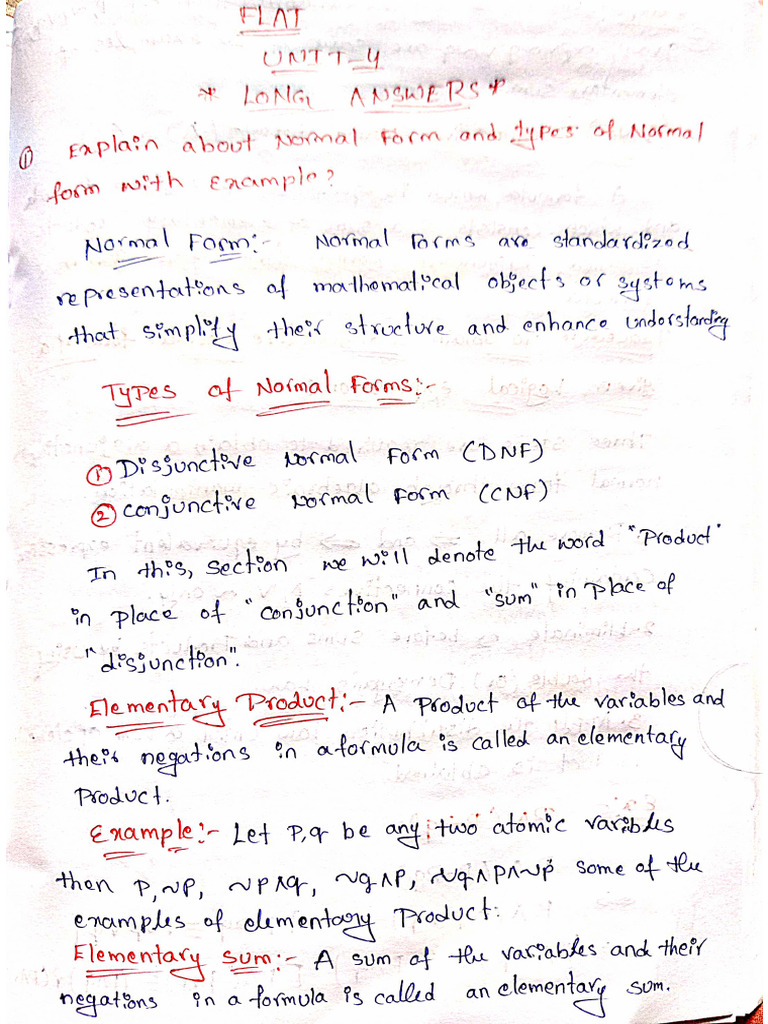 FLAT
UNIT-4
* LONG ANSWERS *
① Explain about Normal Form and types of Normal
form with Example?
Normal Form:- Normal Forms are standardized
representations of mathematical objects or systems
that simplify their structure and enhance understanding
Types of Normal Forms:-
① Disjunctive Normal Form (DNF)
② conjunctive Normal Form (CNF)
In this, section we will denote the word "Product"
in place of "conjunction" and "sum" in place of
"disjunction".
Elementary Product:- A Product of the variables and
their negations in a formula is called an elementary
Product.
Example:- Let P,q be any two atomic variables
then P, ~P, ~P∧q, ~q∧P, ~q∧P∧~P some of the
examples of elementary Product:
Elementary sum:- A sum of the variables and their
negations in a formula is called an elementary sum.